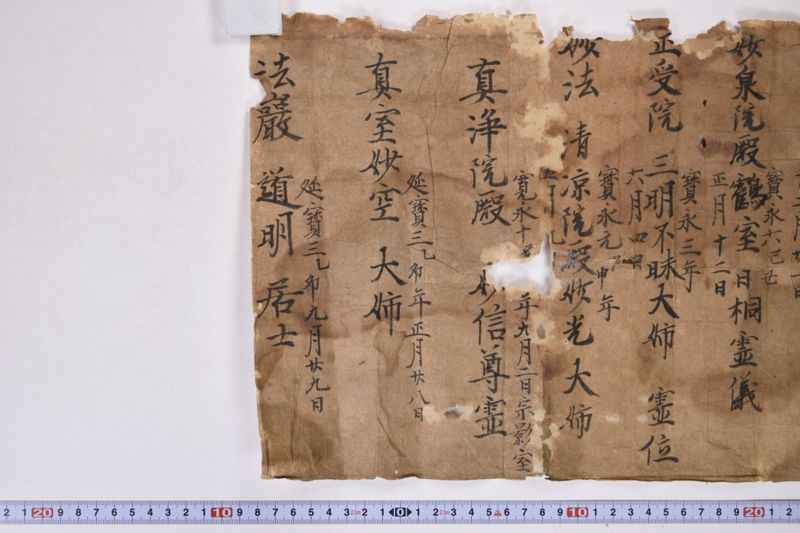 妙泉院殿鶴室日桐霊儀
寳永六己丑
正月十二日
正受院 三明不昧大姉 霊位
寳永三年
六月
妙法 清凉院殿妙光大姉
寳永元申年
真浄院殿 妙信尊霊
寛永十 年九月二日宗影室
真室妙空 大姉
延寳三乙卯年正月廿八日
法巖 道明 居士
延寳三乙卯九月廿九日
2 1 20 9 8 7 6 5 4 3 2 1 10 9 8 7 6 5 4 3 2 1 0 1 2 3 4 5 6 7 8 9 10 1 2 3 4 5 6 7 8 9 20 1 2